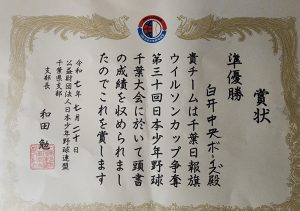 賞状
準優勝
白井中央ボーイズ殿
貴チームは千葉日報旗
ウイルソンカップ争奪
第三十回日本少年野球
千葉大会に於いて頭書
の成績を収められまし
たのでこれを賞します
令和七年七月二十日
公益財団法人日本少年野球連盟
千葉県支部
支部長
和田 勉